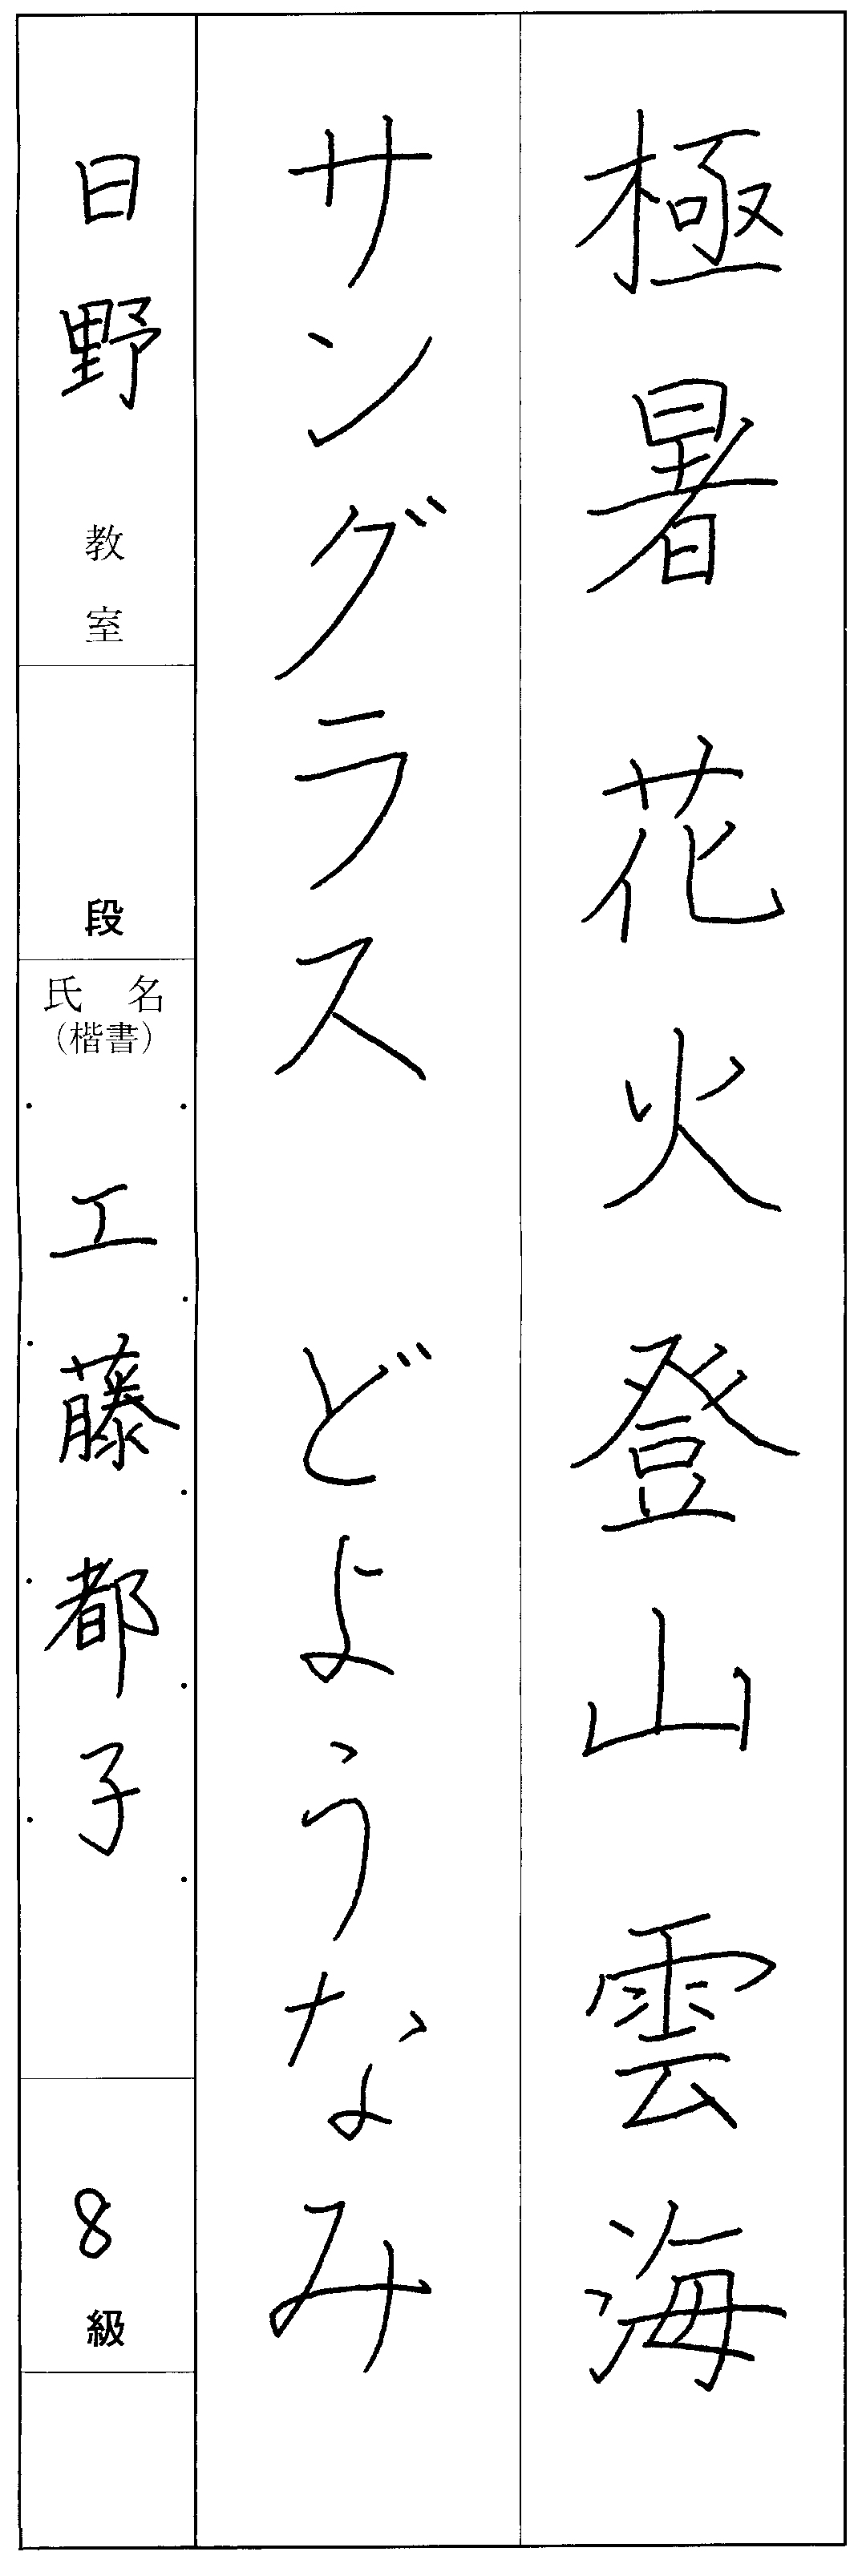 極暑 花火 登山 雲海
サングラス どようなみ
日野 教室
段
氏名
(楷書)
工藤都子
8 級